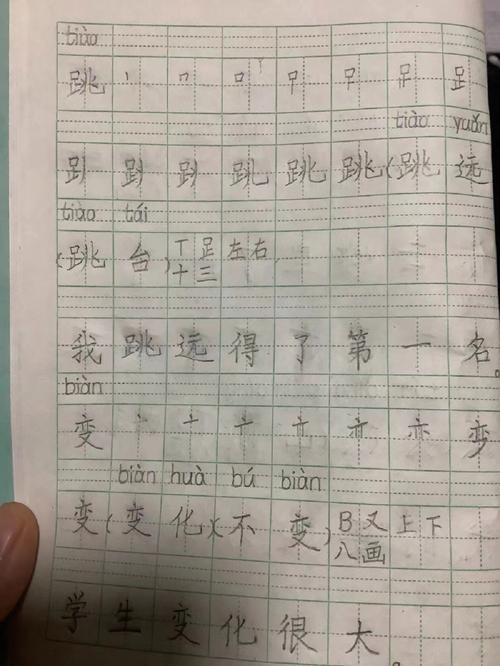 tiào
跳 丨 𠃍 口 𠯮 𠯮 𧾷 𧾷
tiào yuǎn
跳 跳 跳 (跳 远
tiào tái
(跳 台) T 足 左右
十三
我 跳 远 得 了 第 一 名。
biàn
变 丶 亠 亦 变
biàn huà bú biàn
变 (变 化)(不 变) B 又 上下
八画
学 生 变 化 很 大。